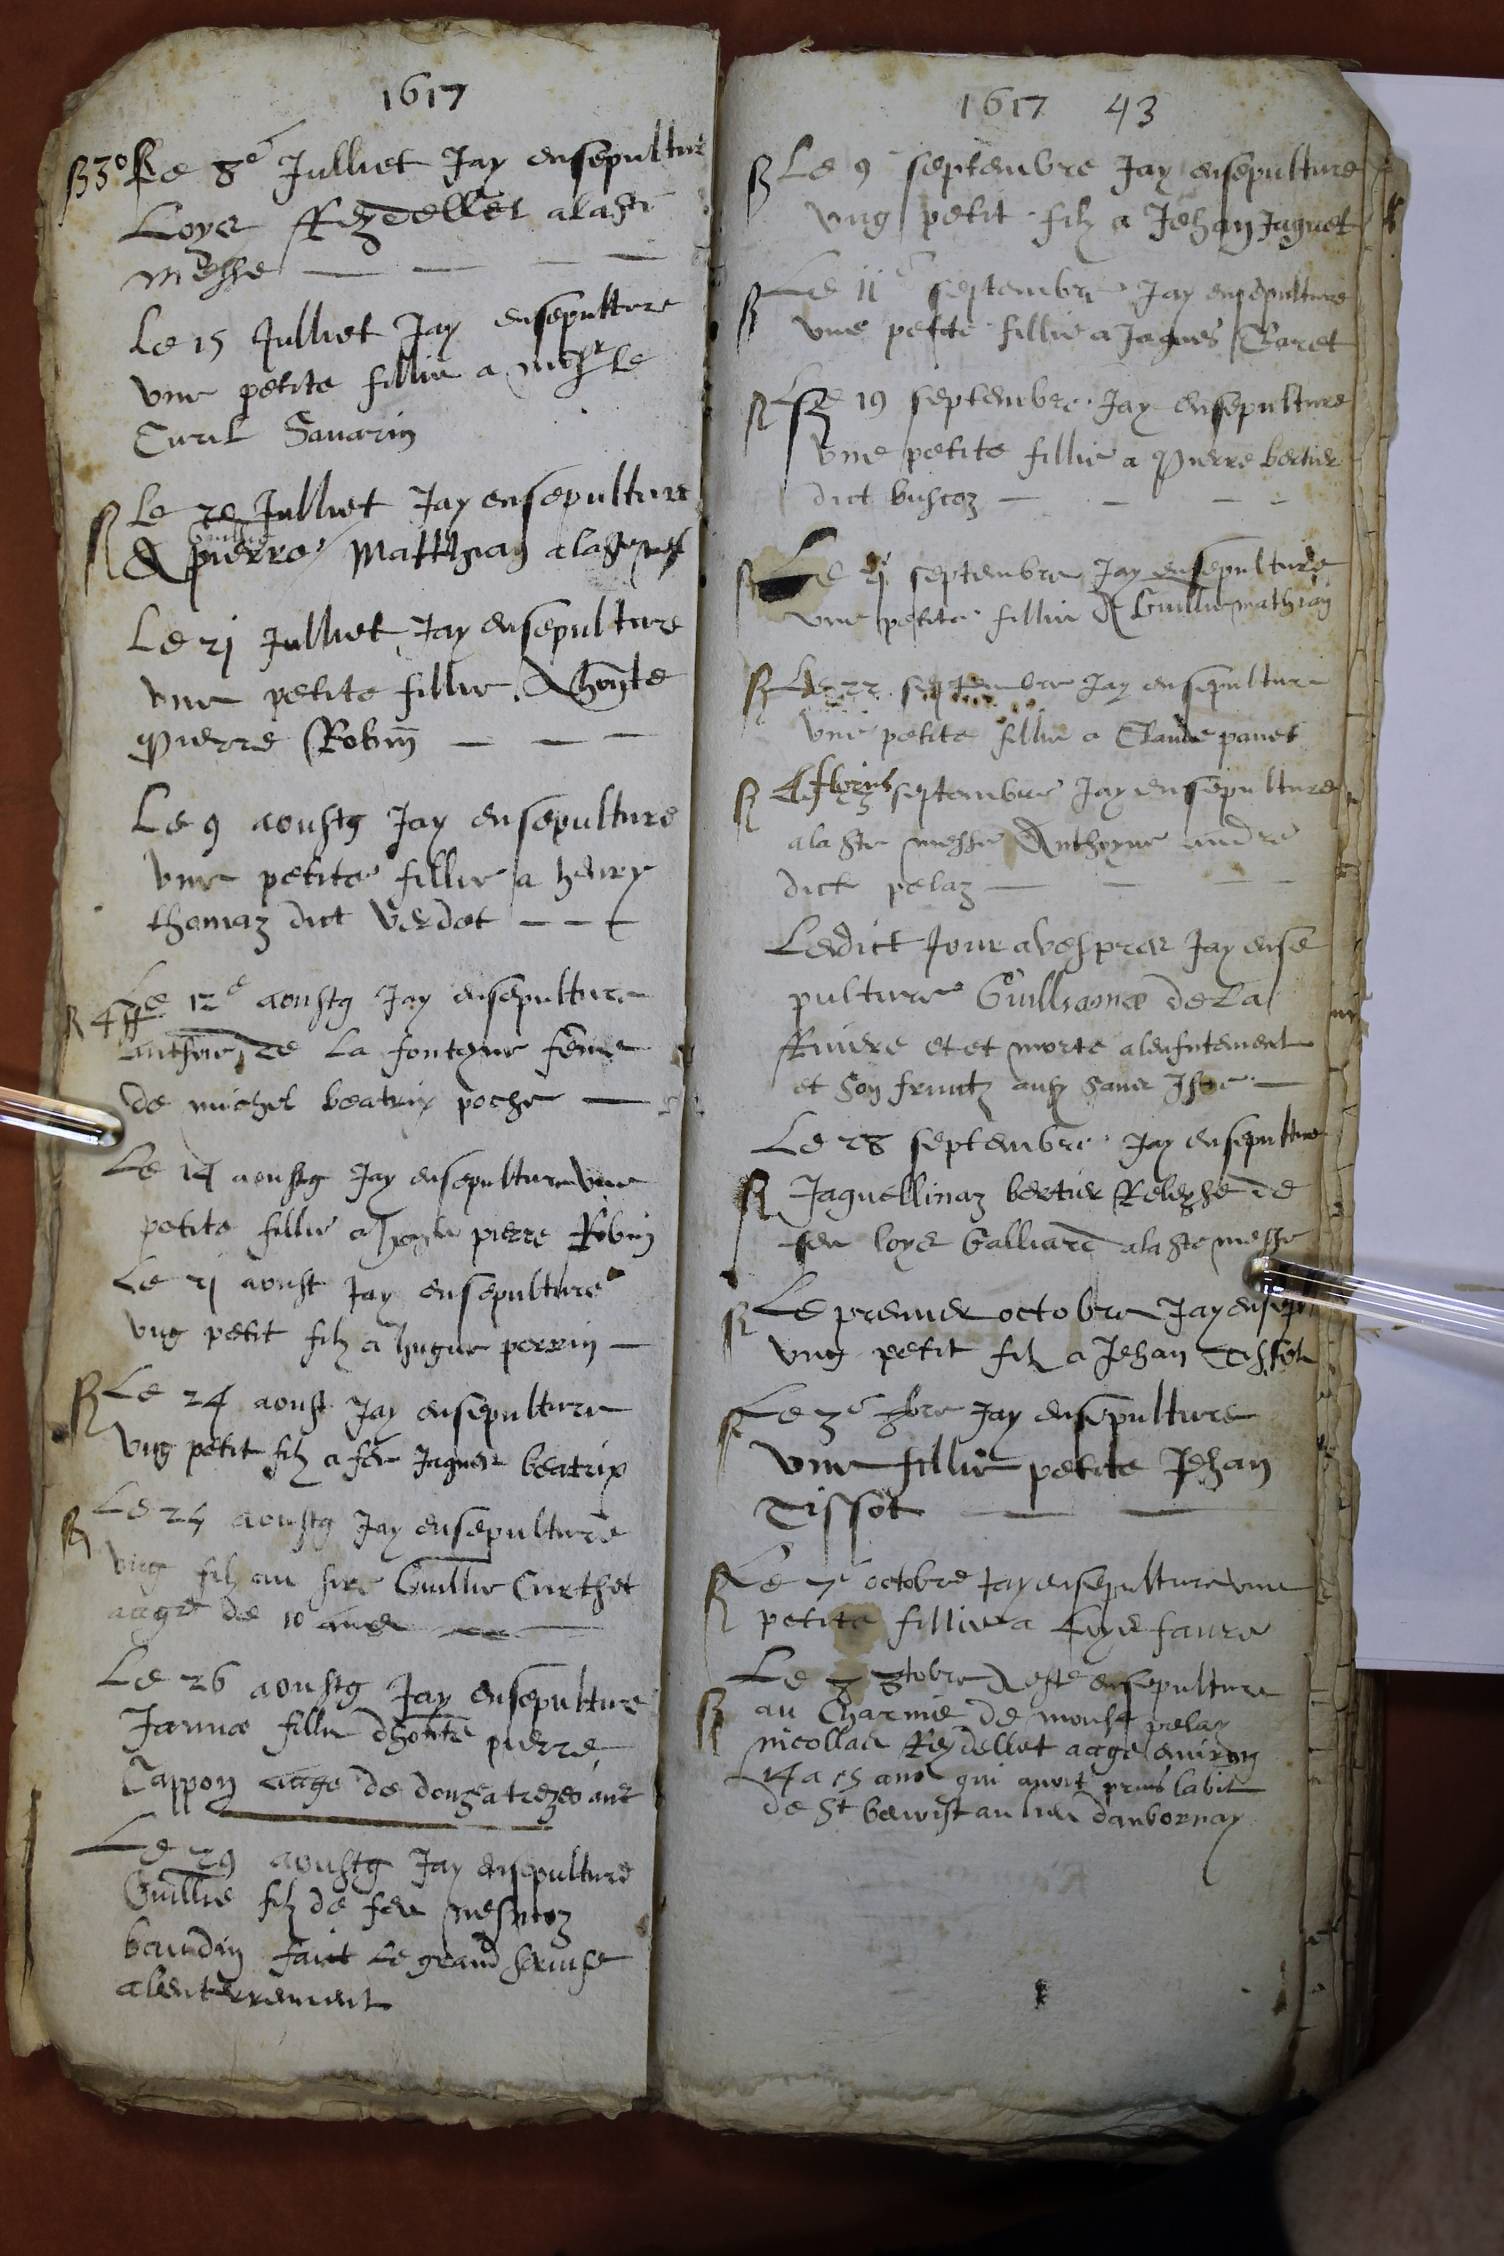 1617
Le 8e Julliet Jay ensepulture
Loys Reydellet a la ste
messe
Le 15 Julliet Jay ensepulture
une petite fillie a
Curt Savarin
Le 20 Julliet Jay ensepulture
pierre Matthian a la ste
Le 21 Julliet Jay ensepulture
une petite fillie A honte
Pierre Robin
Le 9 aoustg Jay ensepulture
une petite fillie a henry
thomaz dict Verdet
Le 12e aoustg Jay ensepulture
de La fontayne feme
de michel beatrix poche
Le 14 aoustg Jay ensepulture une
petite fillie a pierre Robin
Le 21 aoust Jay ensepulture
ung petit filz a hugue perrin
Le 24 aoust Jay ensepulture
ung petit filz a Jaques beatrix
Le 25 aoustg Jay ensepulture
ung filz au Guillie Curthet
aage de 10 ans
Le 26 aoustg Jay ensepulture
fillie dhonte pierre
Tappon aage de douze a treze ans
Le 29 aoustg Jay ensepulture
Guillie filz de feu
baudin faict Le grand
a lenterrement
1617 43
Le 9 septembre Jay ensepulture
ung petit filz a Jehan Jaquet
Le 11e septembre Jay ensepulture
une petite fillie a Jaques
Le 19 septembre Jay ensepulture
une petite fillie a Pierre bertier
dict
Le 21 septembre Jay ensepulture
une petite fillie A Guillie mathian
Le 22 septembre Jay ensepulture
une petite fillie a Claude panet
septembre Jay ensepulture
a la ste messe Anthoyne andre
dict pelaz
Ledict Jour a vesprez Jay ense
pulture Guillioma de La
Riviere et et morte a lenfntement
et son fruictz
Le 28 septembre Jay ensepulture
Jaquellinaz bertier Relexhe de
feu loys Galliard a la ste messe
Le premier octobre Jay ensep
ung petit filz a Jehan Tissot
Le 3e Jay ensepulture
une fillie petite Jehan
Tissot
Le 7e octobre Jay ensepulture une
petite fillie a Loys faure
Le A este ensepulture
au de
nicollas Reydellet aage environ
14 a 15 ans qui avoit prins labit
de St au lieu dambornay